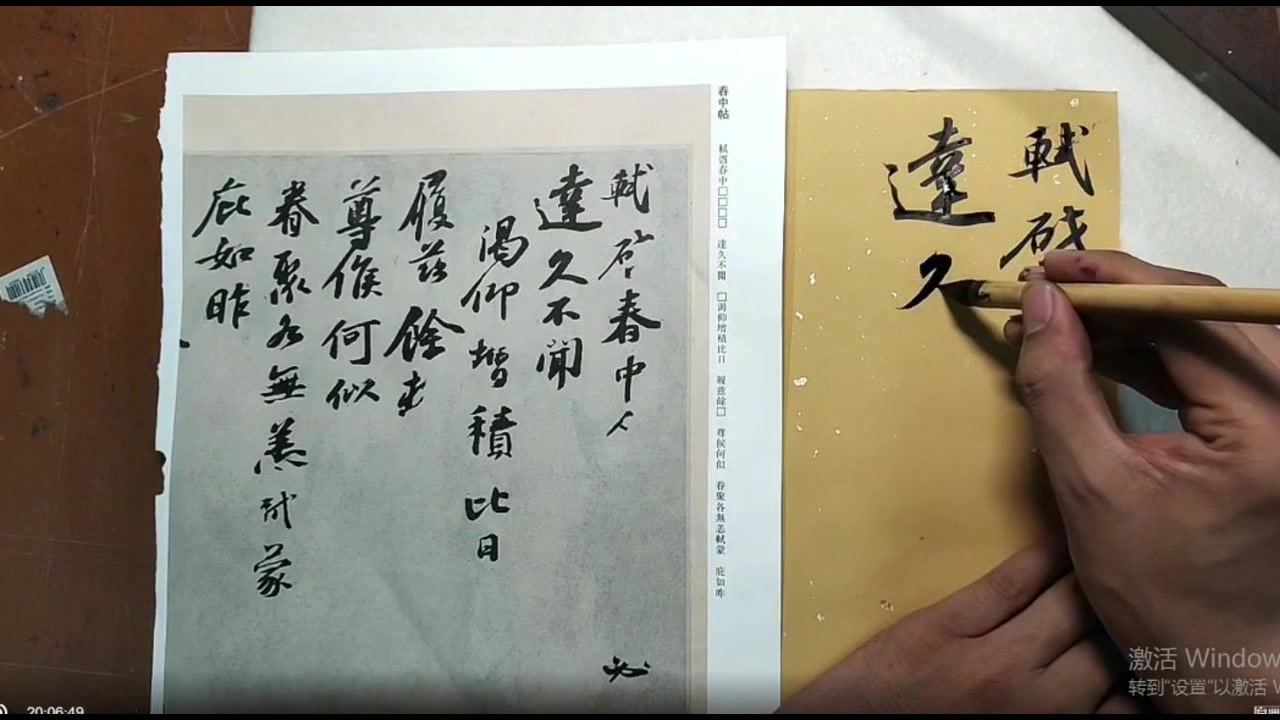 軾啓
達久
春中帖 軾啓春中□□□□ 達久不聞 □渴仰增積比日 履茲餘□ 尊候何似 眷聚各無恙軾蒙 庇如昨
軾啓春中人
達久不聞
渴仰增積比日
履茲餘
尊候何似
眷聚各無恙軾蒙
庇如昨
激活 Window
转到"设置"以激活 W
20:06:49